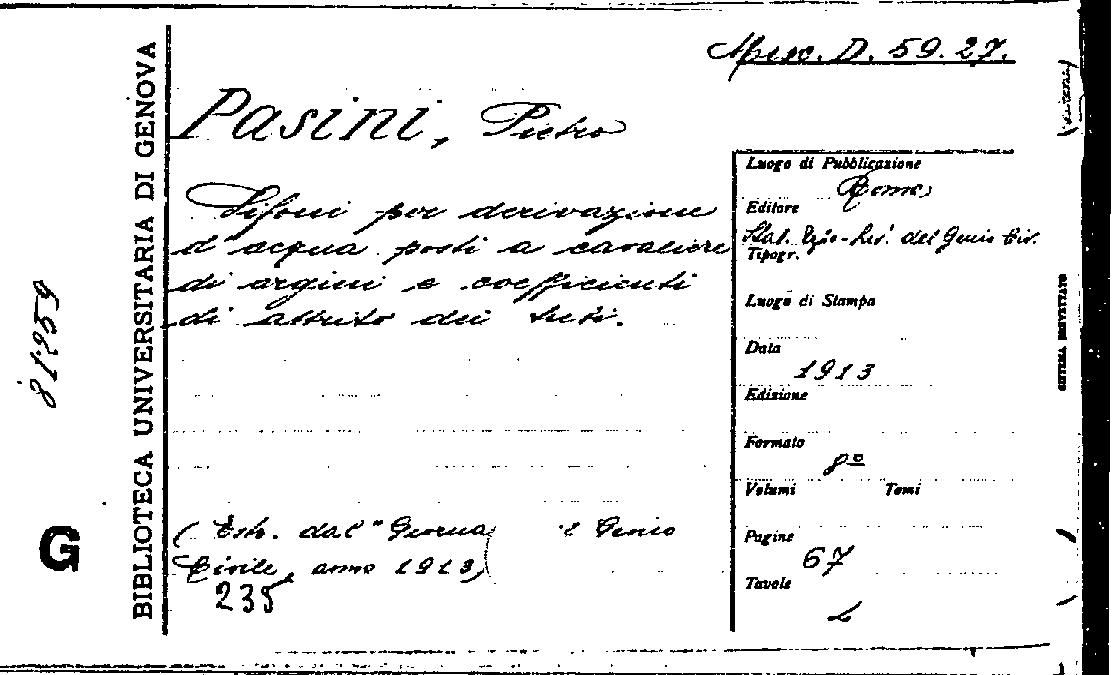 Misc. D. 59. 27.
BIBLIOTECA UNIVERSITARIA DI GENOVA
Pasini, Pietro
Sifoni per derivazione
d'acqua posti a cavaliere
di argini e coefficienti
di attrito dei tubi.
(Estr. dal "Giorna e Genio
Civile, anno 1913)
235
Luogo di Pubblicazione
Roma
Editore
Stab. del Genio Civ.
Tipogr.
Luogo di Stampa
Data
1913
Edizione
Formato
8º
Volumi Tomi
Pagine
67
Tavole
81959
G